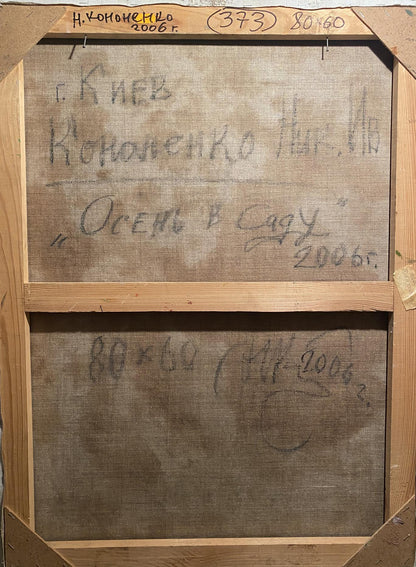 Н. КОНОНЕНКО (373) 80×60
2006 г.
г. Киев
Кононенко Ник. Ив
„Осень в Саду"
2006г.
80×60 2006
г.